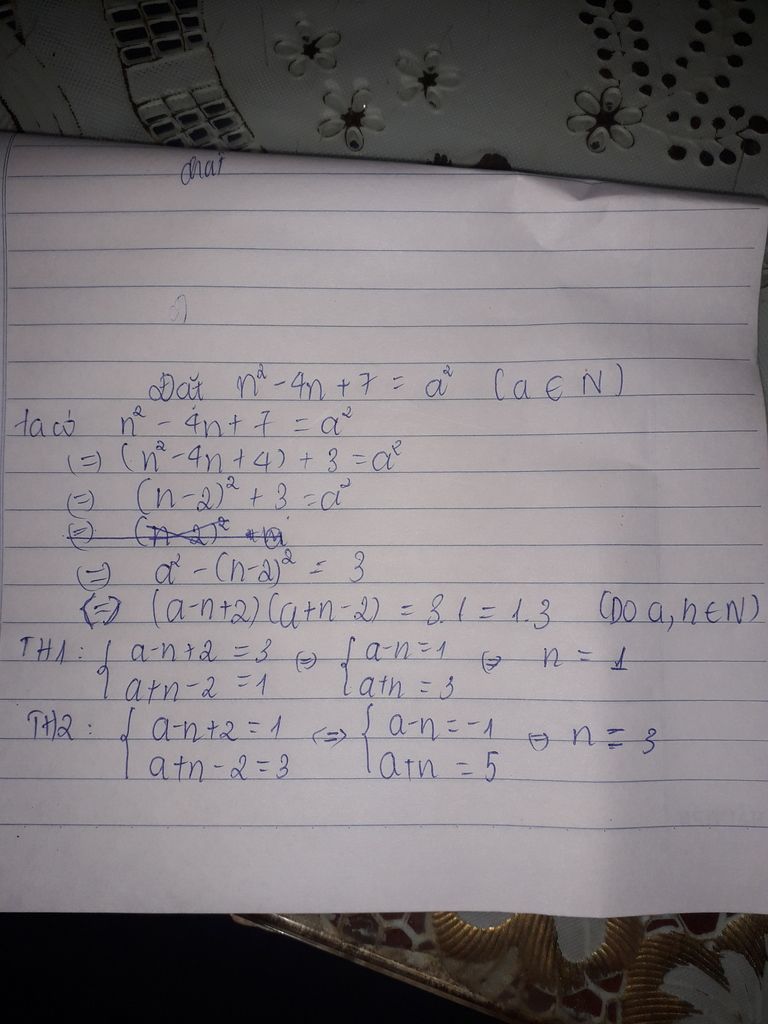 Đặt n² - 4n + 7 = a² (a ∈ N)
ta có n² - 4n + 7 = a²
(=) (n² - 4n + 4) + 3 = a²
(=) (n-2)² + 3 = a²
(=) a² - (n-2)² = 3
(=) (a-n+2)(a+n-2) = 3.1 = 1.3 (DO a, n ∈ N)
TH1: { a-n+2 = 3 (=) { a-n = 1 (=) n = 1
a+n-2 = 1 a+n = 3
TH2: { a-n+2 = 1 (=) { a-n = -1 (=) n = 3
a+n-2 = 3 a+n = 5